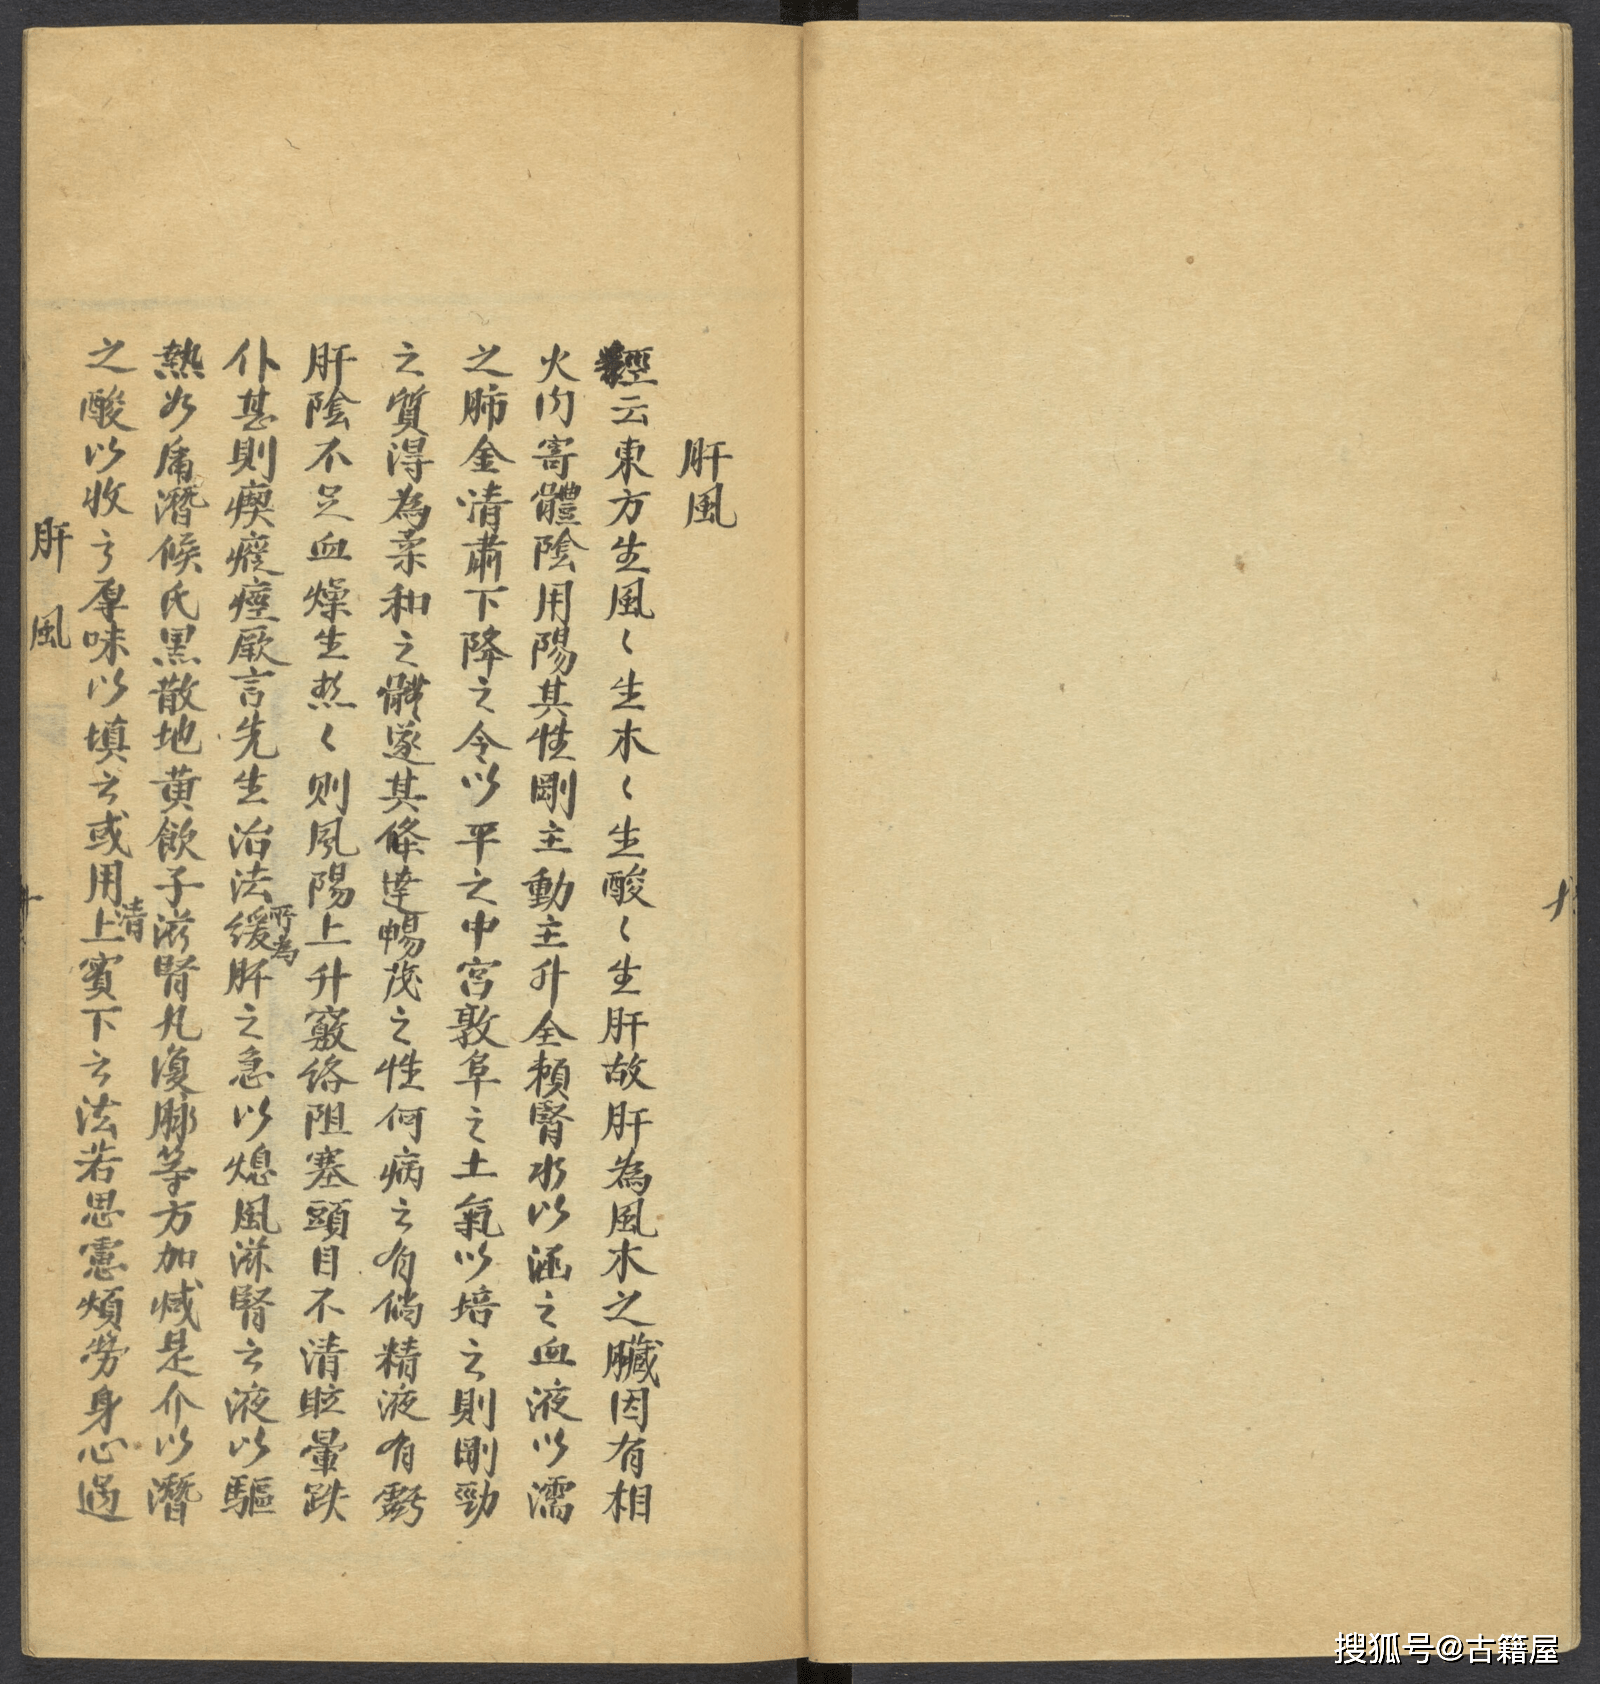 肝風
經云東方生風〻生木〻生酸〻生肝故肝為風木之臟因有相
火内寄體陰用陽其性剛主動主升全賴腎水以涵之血液以濡
之肺金清肅下降之令以平之中宮敦阜之土氣以培之則剛勁
之質得為柔和之體遂其條達暢茂之性何病之有倘精液有虧
肝陰不足血燥生热〻则风陽上升竅絡阻塞頭目不清眩暈跌
仆甚則瘈瘲痙厥言先生治法所為緩肝之急以熄風滋腎之液以驅
熱如虎潛候氏黑散地黄飲子滋腎丸復脉等方加减是介以潛
之酸以收之厚味以填之或用清上實下之法若思慮煩勞身心過
肝風
搜狐号@古籍屋